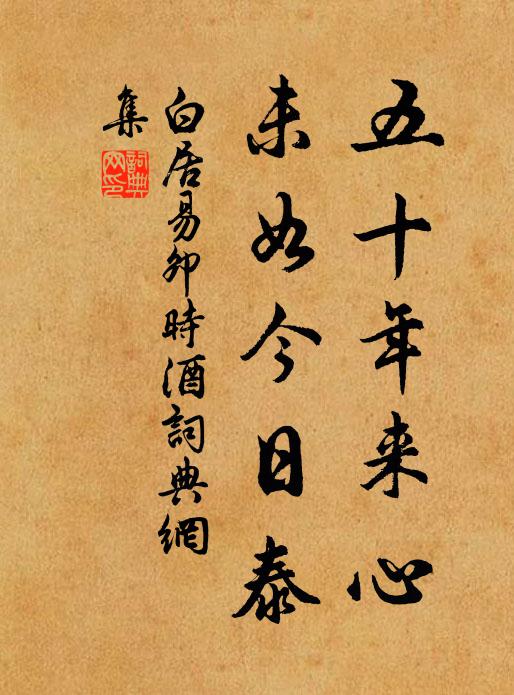 五十年来心
未如今日泰
白居易卯時酒詞典網
集
詞典
网印